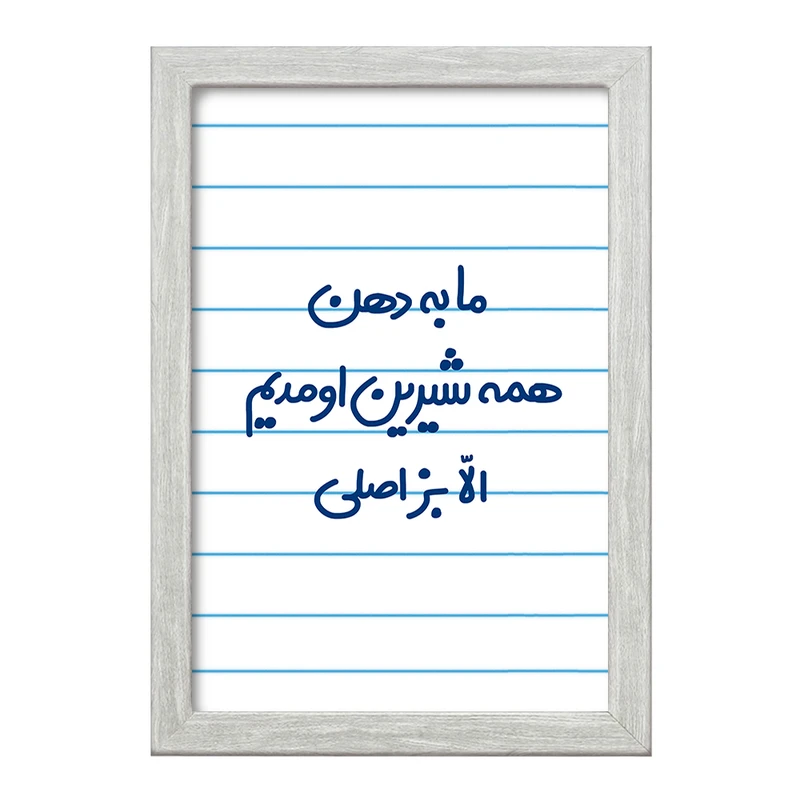 ما به دهن
همه شیرین اومدیم
الّا بز اصلی